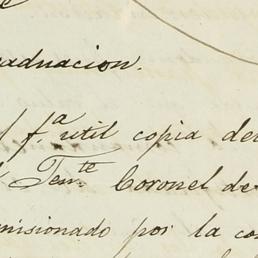 aduacion.
fª util copia de
Temte Coronel de
misionado por la co